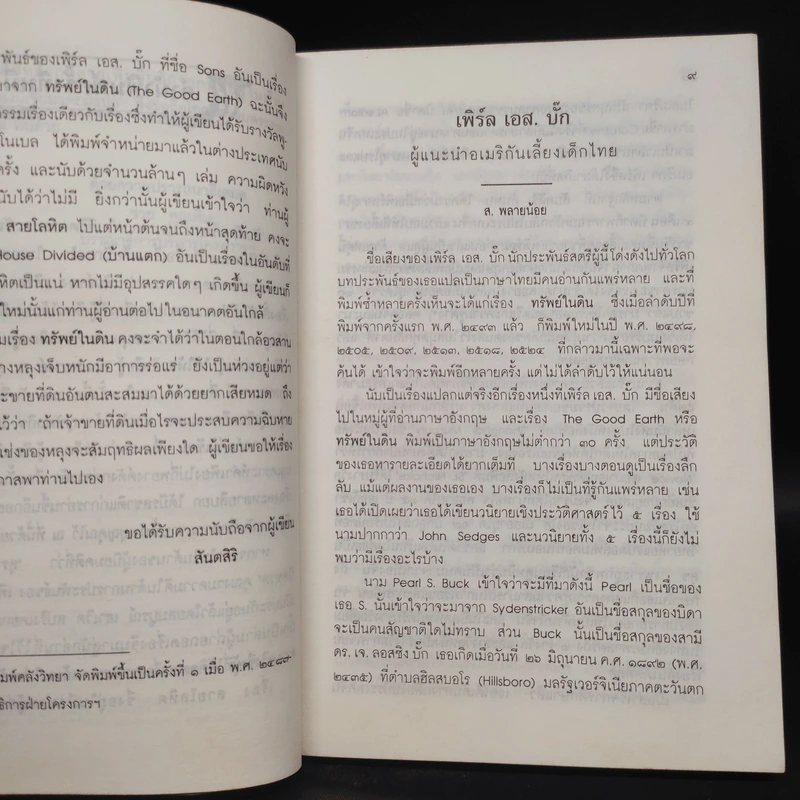 พันธ์ของเพิร์ล เอส. บั๊ก ที่ชื่อ Sons อันเป็นเรื่อง
มาจาก ทรัพย์ในดิน (The Good Earth) ฉะนั้นจึง
กรรมเรื่องเดียวกับเรื่องซึ่งทำให้ผู้เขียนได้รับรางวัลพู-
โนเบล ได้พิมพ์จำหน่ายมาแล้วในต่างประเทศนับ
ครั้ง และนับด้วยจำนวนล้านๆ เล่ม ความผิดหวัง
นับได้ว่าไม่มี ยิ่งกว่านั้นผู้เขียนเข้าใจว่า ท่านผู้
สายโลหิต ไปแต่หน้าต้นจนถึงหน้าสุดท้าย คงจะ
House Divided (บ้านแตก) อันเป็นเรื่องในอันดับที่
หิตเป็นแน่ หากไม่มีอุปสรรคใดๆ เกิดขึ้น ผู้เขียนก็
ใหม่นั้นแก่ท่านผู้อ่านต่อไปในอนาคตอันใกล้
มเรื่อง ทรัพย์ในดิน คงจะจำได้ว่าในตอนใกล้อวสาน
างหลุงเจ็บหนักมีอาการร่อแร่ ยังเป็นห่วงอยู่แต่ว่า
ะขายที่ดินอันตนสะสมมาได้ด้วยยากเสียหมด ถึง
ไว้ว่า "ถ้าเจ้าขายที่ดินเมื่อไรจะประสบความฉิบหาย
แช่งของหลุงจะสัมฤทธิผลเพียงใด ผู้เขียนขอให้เรื่อง
กาสพาท่านไปเอง
ขอได้รับความนับถือจากผู้เขียน
สันตสิริ
มพ์คลังวิทยา จัดพิมพ์ขึ้นเป็นครั้งที่ ๑ เมื่อ พ.ศ. ๒๔๘๗-
ธิการฝ่ายโครงการฯ
๙
เพิร์ล เอส. บั๊ก
ผู้แนะนำอเมริกันเลี้ยงเด็กไทย
ส. พลายน้อย
ชื่อเสียงของเพิร์ล เอส. บั๊ก นักประพันธ์สตรีผู้นี้โด่งดังไปทั่วโลก
บทประพันธ์ของเธอแปลเป็นภาษาไทยมีคนอ่านกันแพร่หลาย และที่
พิมพ์ซ้ำหลายครั้งเห็นจะได้แก่เรื่อง ทรัพย์ในดิน ซึ่งเมื่อลำดับปีที่
พิมพ์จากครั้งแรก พ.ศ. ๒๔๙๓ แล้ว ก็พิมพ์ใหม่ในปี พ.ศ. ๒๔๙๘,
๒๕๐๕, ๒๕๐๙, ๒๕๑๓, ๒๕๑๘, ๒๕๒๔ ที่กล่าวมานี้เฉพาะที่พอจะ
ค้นได้ เข้าใจว่าจะพิมพ์อีกหลายครั้ง แต่ไม่ได้ลำดับไว้ให้แน่นอน
นับเป็นเรื่องแปลกแต่จริงอีกเรื่องหนึ่งที่เพิร์ล เอส. บั๊ก มีชื่อเสียง
ไปในหมู่ผู้ที่อ่านภาษาอังกฤษ และเรื่อง The Good Earth หรือ
ทรัพย์ในดิน พิมพ์เป็นภาษาอังกฤษไม่ต่ำกว่า ๓๐ ครั้ง แต่ประวัติ
ของเธอหารายละเอียดได้ยากเต็มที บางเรื่องบางตอนดูเป็นเรื่องลึก
ลับ แม้แต่ผลงานของเธอเอง บางเรื่องก็ไม่เป็นที่รู้กันแพร่หลาย เช่น
เธอได้เปิดเผยว่าเธอได้เขียนนวนิยายเชิงประวัติศาสตร์ไว้ ๕ เรื่อง ใช้
นามปากกาว่า John Sedges และนวนิยายทั้ง ๕ เรื่องนี้ก็ยังไม่
พบว่ามีเรื่องอะไรบ้าง
นาม Pearl S. Buck เข้าใจว่าจะมีที่มาดังนี้ Pearl เป็นชื่อของ
เธอ S. นั้นเข้าใจว่าจะมาจาก Sydenstricker อันเป็นชื่อสกุลของบิดา
จะเป็นคนสัญชาติใดไม่ทราบ ส่วน Buck นั้นเป็นชื่อสกุลของสามี
ดร. เจ. ลอสซิง บั๊ก เธอเกิดเมื่อวันที่ ๒๖ มิถุนายน ค.ศ. ๑๘๙๒ (พ.ศ.
๒๔๓๕) ที่ตำบลฮิลสบอโร (Hillsboro) มลรัฐเวอร์จิเนียภาคตะวันตก